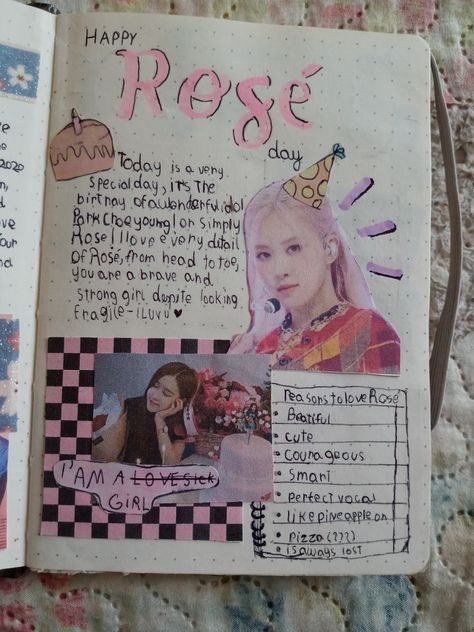 ve
2020
in,
ve
our
nd
HAPPY
Rosé
day
Today is a very
special day, it's the
birtnay of a wonderful idol
Park Choeyoung | or simply
Rose | I love every ditail
OF Rosé, from head to toe,
you are a brave and
strong girl depite looking
Fragile - I LUVU ♥
I'AM A LOVESICK
GIRL
Reasons to love Rosé
• Beatiful
• cute
• Courageous
• Smart
• perfect vocal
• like pineapple on
• pizza (???)
• is aways lost